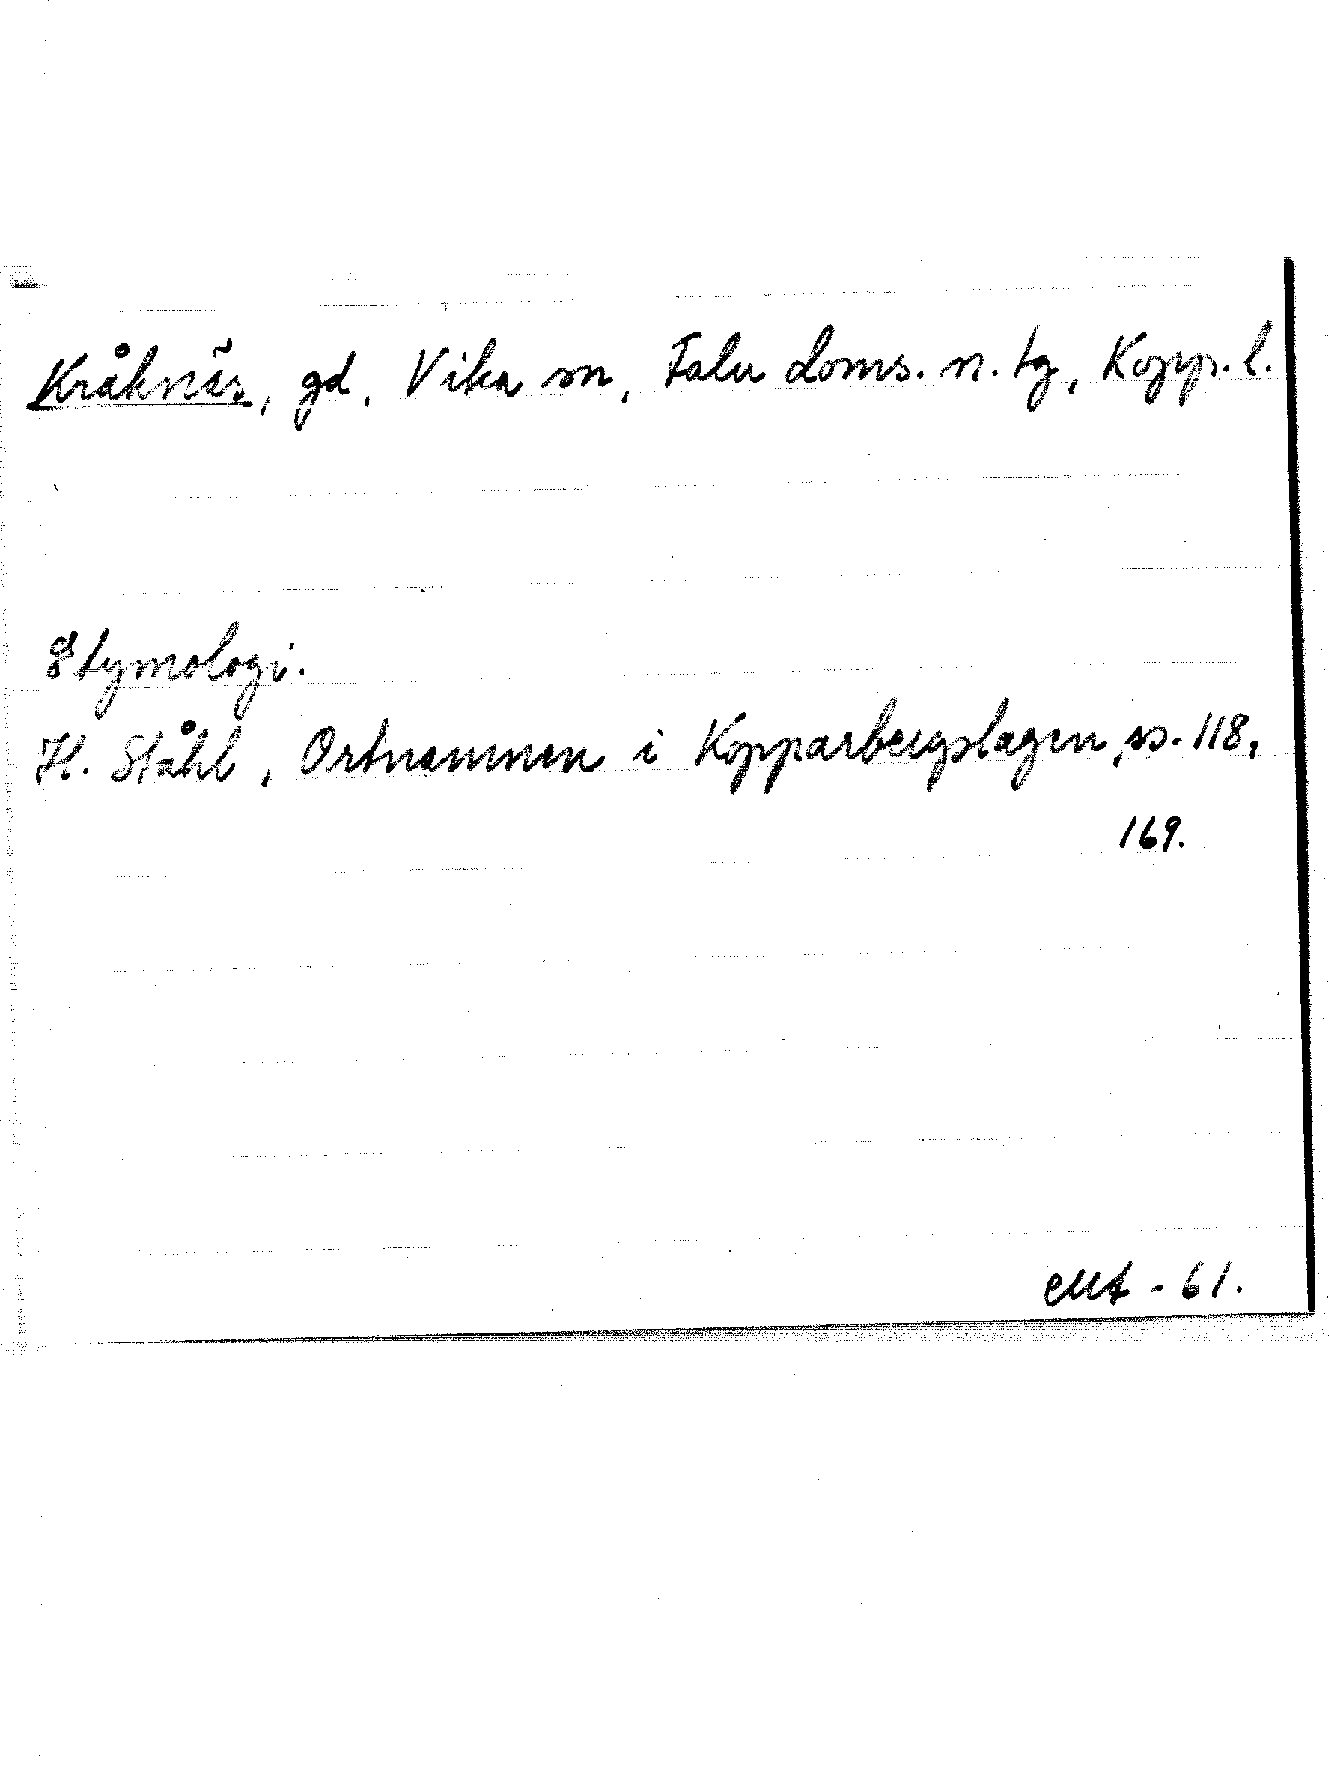 Kråknäs, gd, Vika sn, Falu doms. n. tg, Kopp. l.
Etymologi.
H. Ståhl, Ortnamnen i Kopparbergslagen, ss. 118,
169.
- 61.